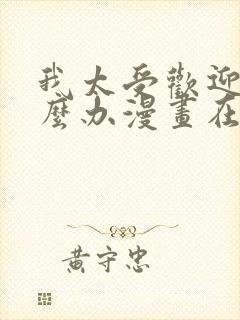 我太受歡迎
麼办漫畫在
黃守忠